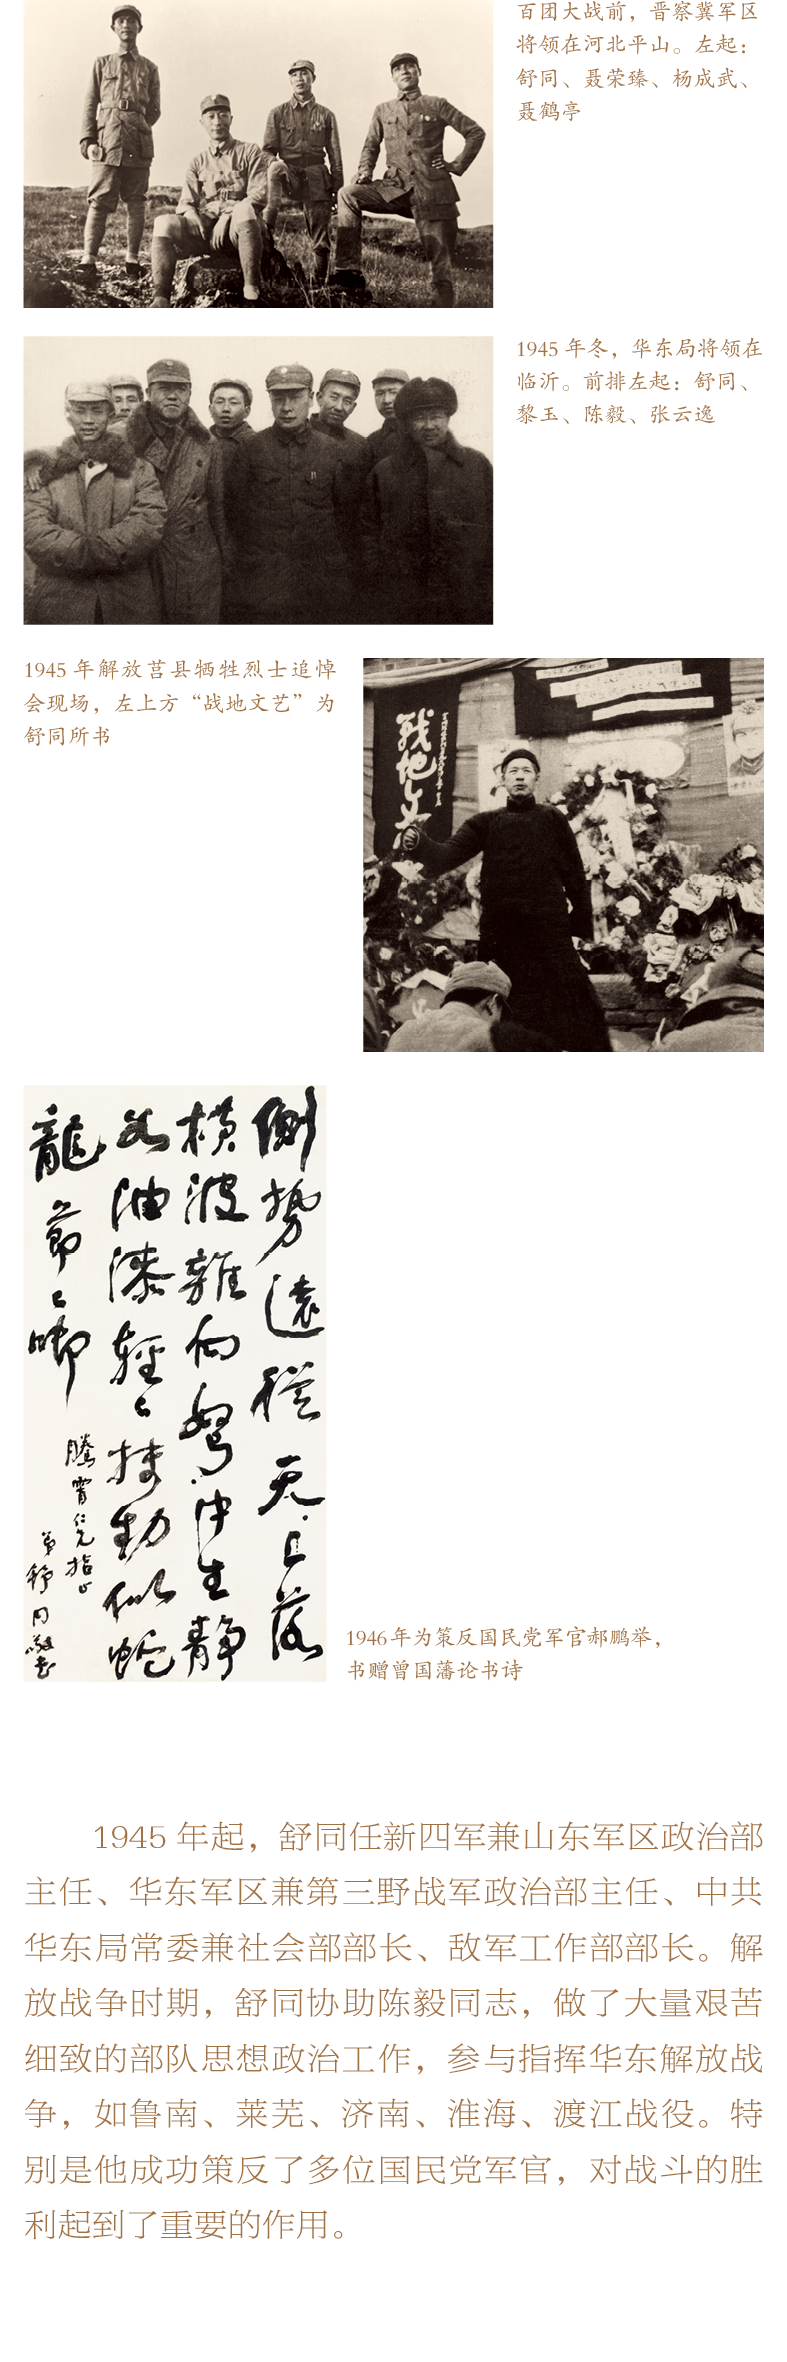 百团大战前，晋察冀军区
将领在河北平山。左起：
舒同、聂荣臻、杨成武、
聂鹤亭
1945 年冬，华东局将领在
临沂。前排左起：舒同、
黎玉、陈毅、张云逸
1945 年解放莒县牺牲烈士追悼
会现场，左上方“战地文艺”为
舒同所书
战地文
侧势远从天上落
横波杂向弩中生静
如油漆轻〻拂动似蛇
龙节〻卿
腾霄仁兄指正
弟舒同敬书
1946年为策反国民党军官郝鹏举，
书赠曾国藩论书诗
1945 年起，舒同任新四军兼山东军区政治部
主任、华东军区兼第三野战军政治部主任、中共
华东局常委兼社会部部长、敌军工作部部长。解
放战争时期，舒同协助陈毅同志，做了大量艰苦
细致的部队思想政治工作，参与指挥华东解放战
争，如鲁南、莱芜、济南、淮海、渡江战役。特
别是他成功策反了多位国民党军官，对战斗的胜
利起到了重要的作用。